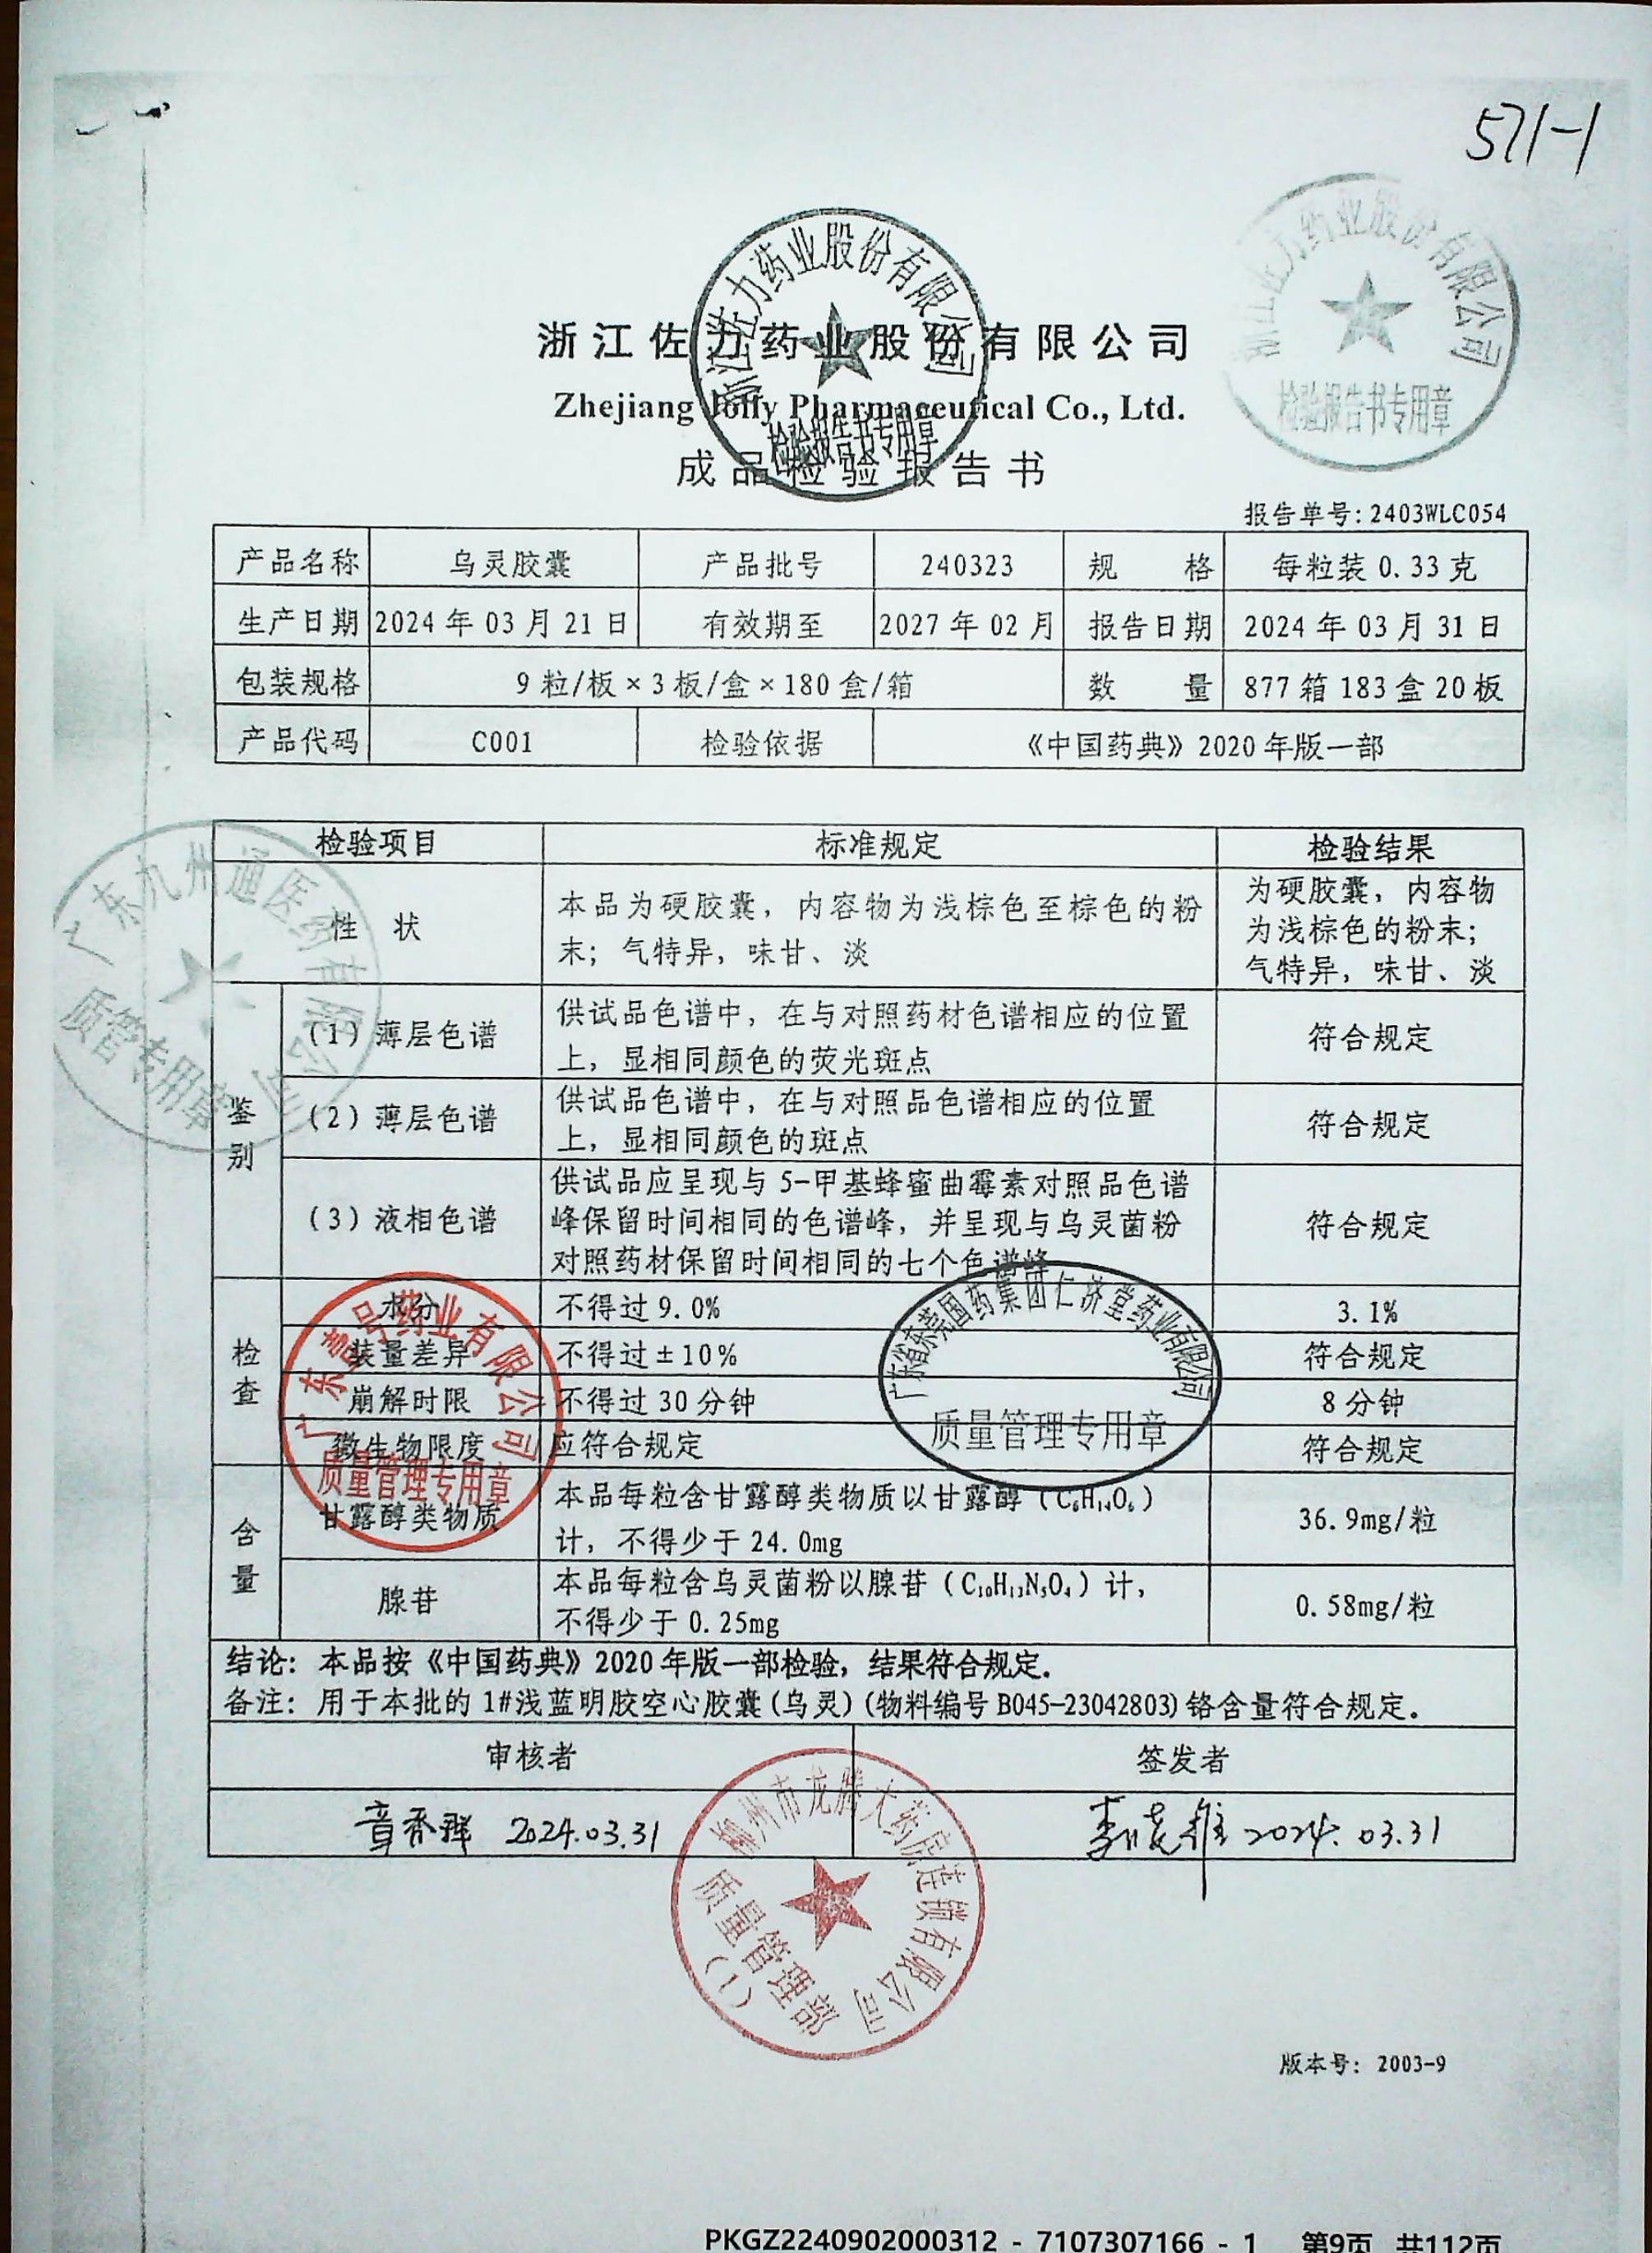 571-1
浙江佐力药业股份有限公司
检验报告书专用章
浙江佐力药业股份有限公司
检验报告书专用章
浙江佐力药业股份有限公司
Zhejiang Jolly Pharmaceutical Co., Ltd.
成品检验报告书
报告单号: 2403WLC054
产品名称 乌灵胶囊 产品批号 240323 规 格 每粒装 0.33 克
生产日期 2024 年 03 月 21 日 有效期至 2027 年 02 月 报告日期 2024 年 03 月 31 日
包装规格 9 粒/板×3 板/盒×180 盒/箱 数 量 877 箱 183 盒 20 板
产品代码 C001 检验依据 《中国药典》2020 年版一部
检验项目 标准规定 检验结果
广东九州通医药有限公司
质管专用章
性 状
本品为硬胶囊，内容物为浅棕色至棕色的粉
末；气特异，味甘、淡
为硬胶囊，内容物
为浅棕色的粉末；
气特异，味甘、淡
鉴别
(1) 薄层色谱
供试品色谱中，在与对照药材色谱相应的位置
上，显相同颜色的荧光斑点
符合规定
(2) 薄层色谱
供试品色谱中，在与对照品色谱相应的位置
上，显相同颜色的斑点
符合规定
(3) 液相色谱
供试品应呈现与 5-甲基蜂蜜曲霉素对照品色谱
峰保留时间相同的色谱峰，并呈现与乌灵菌粉
对照药材保留时间相同的七个色谱峰
符合规定
检查
水分 不得过 9.0% 3.1%
装量差异 不得过±10% 符合规定
崩解时限 不得过 30 分钟 8 分钟
微生物限度 应符合规定 符合规定
药业有限公司
质量管理专用章
广东省东莞国药集团仁济堂药业有限公司
质量管理专用章
含量
甘露醇类物质
本品每粒含甘露醇类物质以甘露醇（C₆H₁₄O₆）
计，不得少于 24.0mg
36.9mg/粒
腺苷
本品每粒含乌灵菌粉以腺苷（C₁₀H₁₃N₅O₄）计，
不得少于 0.25mg
0.58mg/粒
结论：本品按《中国药典》2020 年版一部检验，结果符合规定.
备注：用于本批的 1#浅蓝明胶空心胶囊(乌灵)(物料编号 B045-23042803)铬含量符合规定。
审核者 签发者
章香群 2024.03.31
2024.03.31
州市龙腾大药房连锁有限公司
质量管理部
(1)
版本号: 2003-9
PKGZ2240902000312 - 7107307166 - 1 第9页 共112页